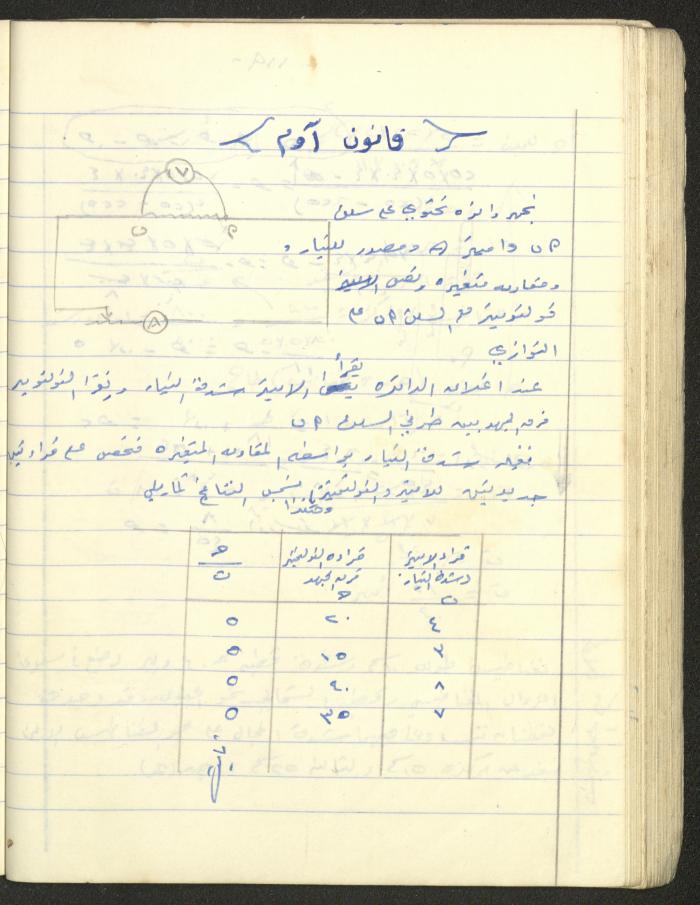 قانون آوم
نجهز دائرة تحتوي على سلك
P ن وامبير A ومصدر للتيار و
ومقاومة متغيرة ونصل
فولتومتر مع السلك P ن على
التوازي
عند اغلاق الدائرة يقرأ الامبير شدة التيار ويقرأ الفولتومتر
فرق الجهد بين طرفي السلك P ن
نغير شدة التيار بواسطة المقاومة المتغيرة فنحصل على قراءتين
جديدتين للامبير والفولتميتر وهكذا نسجل النتائج كما يلي
V
P
ن
A
قراءة الامبير قراءة الفولتميتر حـ
وشدة التيار فرق الجهد ت
ت حـ
٤ ٢٠ ٥
٣ ١٥ ٥
٨ ٤٠ ٥
٧ ٣٥ ٥
ثابت